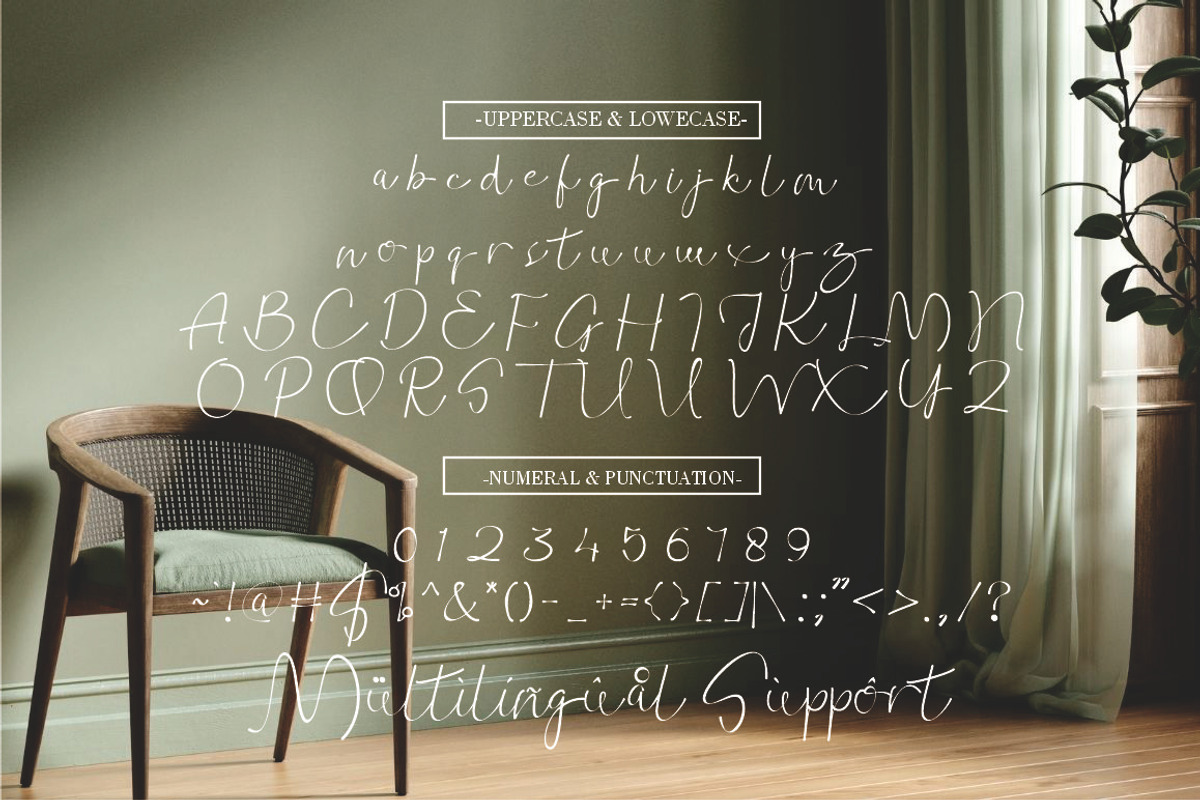 -UPPERCASE & LOWECASE-
a b c d e f g h i j k l m
n o p q r s t u v w x y z
A B C D E F G H I J K L M N
O P Q R S T U V W X Y Z
-NUMERAL & PUNCTUATION-
0 1 2 3 4 5 6 7 8 9
~ ` ! @ # $ % ^ & * ( ) - _ + = { } [ ] | \ : ; ” < > . , / ?
Mültilíñgûeål Sùeppôrt